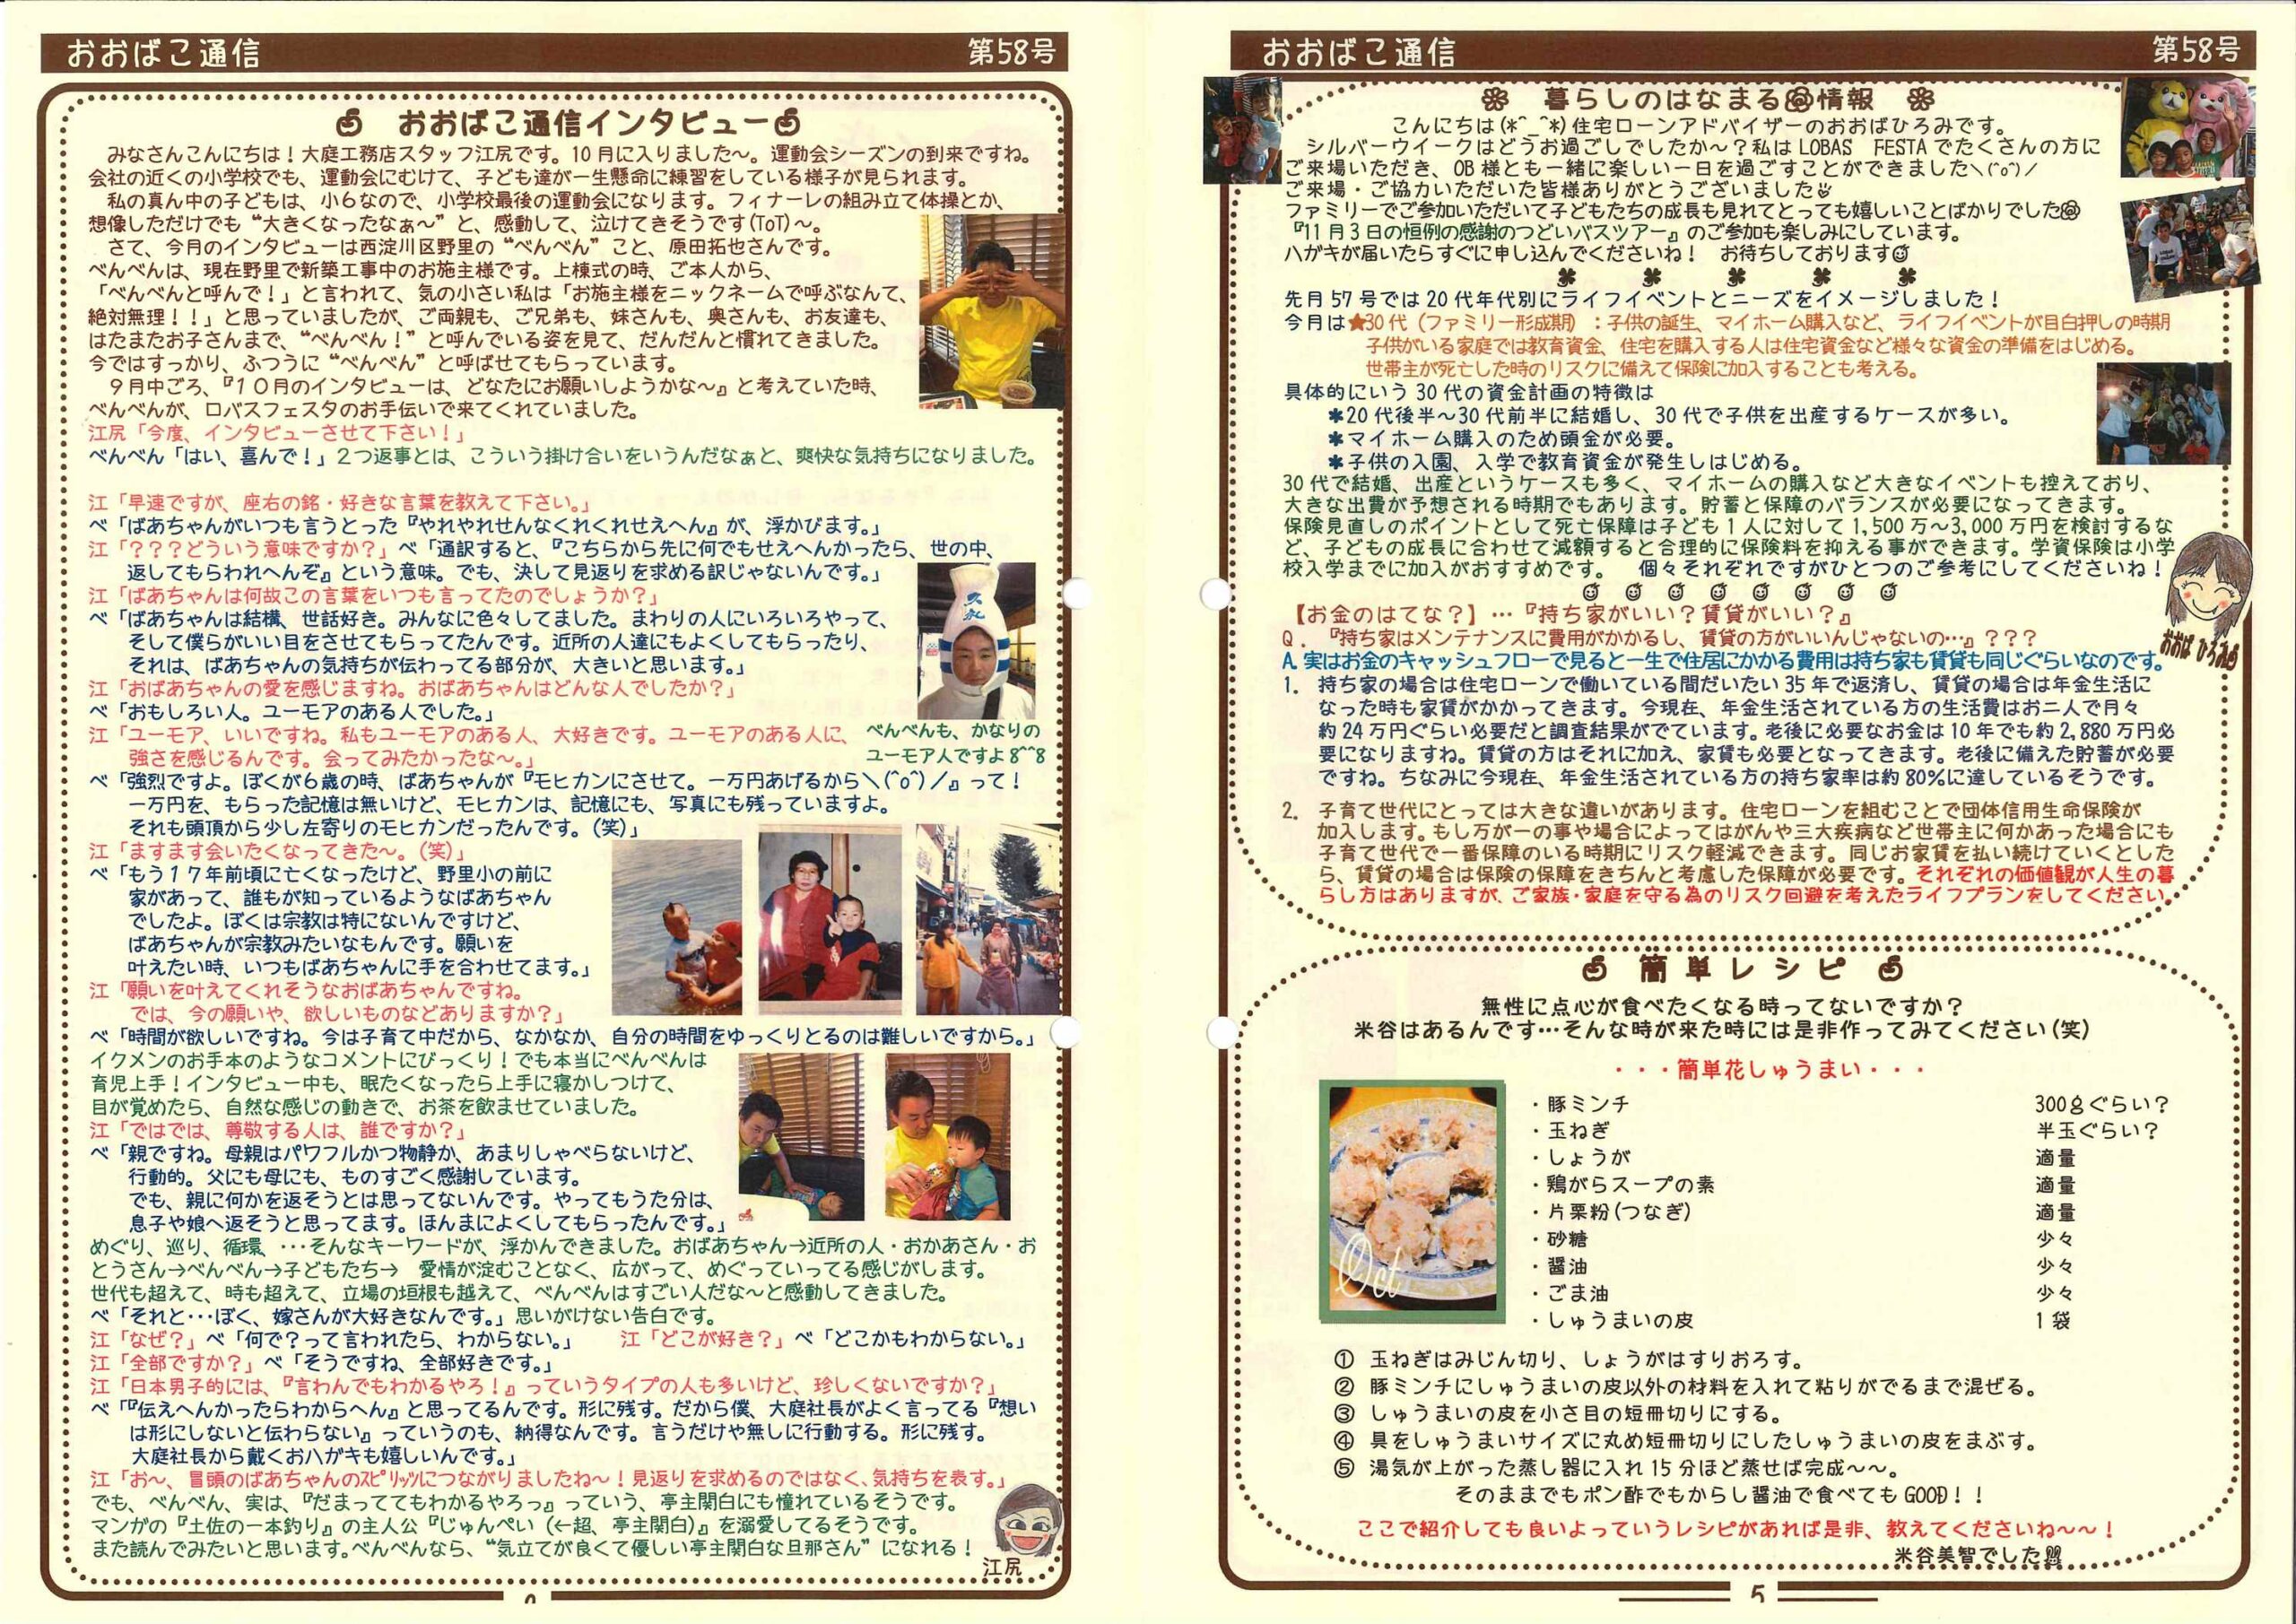 おおばこ通信 第58号
おおばこ通信インタビュー
みなさんこんにちは！大庭工務店スタッフ江尻です。10月に入りました～。運動会シーズンの到来ですね。
会社の近くの小学校でも、運動会にむけて、子ども達が一生懸命に練習をしている様子が見られます。
私の真ん中の子どもは、小６なので、小学校最後の運動会になります。フィナーレの組み立て体操とか、
想像しただけでも“大きくなったなぁ～”と、感動して、泣けてきそうです(ToT)～。
さて、今月のインタビューは西淀川区野里の“べんべん”こと、原田拓也さんです。
べんべんは、現在野里で新築工事中のお施主様です。上棟式の時、ご本人から、
「べんべんと呼んで！」と言われて、気の小さい私は「お施主様をニックネームで呼ぶなんて、
絶対無理！！」と思っていましたが、ご両親も、ご兄弟も、妹さんも、奥さんも、お友達も、
はたまたお子さんまで、“べんべん！”と呼んでいる姿を見て、だんだんと慣れてきました。
今ではすっかり、ふつうに“べんべん”と呼ばせてもらっています。
９月中ごろ、『１０月のインタビューは、どなたにお願いしようかな～』と考えていた時、
べんべんが、ロバスフェスタのお手伝いで来てくれていました。
江尻「今度、インタビューさせて下さい！」
べんべん「はい、喜んで！」２つ返事とは、こういう掛け合いをいうんだなぁと、爽快な気持ちになりました。
江「早速ですが、座右の銘・好きな言葉を教えて下さい。」
べ「ばあちゃんがいつも言うとった『やれやれせんなくれくれせえへん』が、浮かびます。」
江「？？？どういう意味ですか？」べ「通訳すると、『こちらから先に何でもせえへんかったら、世の中、
返してもらわれへんぞ』という意味。でも、決して見返りを求める訳じゃないんです。」
江「ばあちゃんは何故この言葉をいつも言ってたのでしょうか？」
べ「ばあちゃんは結構、世話好き。みんなに色々してました。まわりの人にいろいろやって、
そして僕らがいい目をさせてもらってたんです。近所の人達にもよくしてもらったり、
それは、ばあちゃんの気持ちが伝わってる部分が、大きいと思います。」
江「おばあちゃんの愛を感じますね。おばあちゃんはどんな人でしたか？」
べ「おもしろい人。ユーモアのある人でした。」
江「ユーモア、いいですね。私もユーモアのある人、大好きです。ユーモアのある人に、
強さを感じるんです。会ってみたかったな～。」
べんべんも、かなりの
ユーモア人ですよ8^^8
べ「強烈ですよ。ぼくが６歳の時、ばあちゃんが『モヒカンにさせて。一万円あげるから＼(^o^)／』って！
一万円を、もらった記憶は無いけど、モヒカンは、記憶にも、写真にも残っていますよ。
それも頭頂から少し左寄りのモヒカンだったんです。（笑）」
江「ますます会いたくなってきた～。（笑）」
べ「もう１７年前頃に亡くなったけど、野里小の前に
家があって、誰もが知っているようなばあちゃん
でしたよ。ぼくは宗教は特にないんですけど、
ばあちゃんが宗教みたいなもんです。願いを
叶えたい時、いつもばあちゃんに手を合わせてます。」
江「願いを叶えてくれそうなおばあちゃんですね。
では、今の願いや、欲しいものなどありますか？」
べ「時間が欲しいですね。今は子育て中だから、なかなか、自分の時間をゆっくりとるのは難しいですから。」
イクメンのお手本のようなコメントにびっくり！でも本当にべんべんは
育児上手！インタビュー中も、眠たくなったら上手に寝かしつけて、
目が覚めたら、自然な感じの動きで、お茶を飲ませていました。
江「ではでは、尊敬する人は、誰ですか？」
べ「親ですね。母親はパワフルかつ物静か、あまりしゃべらないけど、
行動的。父にも母にも、ものすごく感謝しています。
でも、親に何かを返そうとは思ってないんです。やってもうた分は、
息子や娘へ返そうと思ってます。ほんまによくしてもらったんです。」
めぐり、巡り、循環、…そんなキーワードが、浮かんできました。おばあちゃん→近所の人・おかあさん・お
とうさん→べんべん→子どもたち→　愛情が淀むことなく、広がって、めぐっていってる感じがします。
世代も超えて、時も超えて、立場の垣根も越えて、べんべんはすごい人だな～と感動してきました。
べ「それと…ぼく、嫁さんが大好きなんです。」思いがけない告白です。
江「なぜ？」べ「何で？って言われたら、わからない。」　江「どこが好き？」べ「どこかもわからない。」
江「全部ですか？」べ「そうですね、全部好きです。」
江「日本男子的には、『言わんでもわかるやろ！』っていうタイプの人も多いけど、珍しくないですか？」
べ「『伝えへんかったらわからへん』と思ってるんです。形に残す。だから僕、大庭社長がよく言ってる『想い
は形にしないと伝わらない』っていうのも、納得なんです。言うだけや無しに行動する。形に残す。
大庭社長から戴くおハガキも嬉しいんです。」
江「お～、冒頭のばあちゃんのｽﾋﾟﾘｯﾂにつながりましたね～！見返りを求めるのではなく、気持ちを表す。」
でも、べんべん、実は、『だまっててもわかるやろっ』っていう、亭主関白にも憧れているそうです。
マンガの『土佐の一本釣り』の主人公『じゅんぺい（←超、亭主関白）』を溺愛してるそうです。
また読んでみたいと思います。べんべんなら、“気立てが良くて優しい亭主関白な旦那さん”になれる！
江尻
おおばこ通信 第58号
暮らしのはなまる情報
こんにちは(*^_^*)住宅ローンアドバイザーのおおばひろみです。
シルバーウイークはどうお過ごしでしたか～？私は LOBAS FESTA でたくさんの方に
ご来場いただき、OB 様とも一緒に楽しい一日を過ごすことができました＼(^o^)／
ご来場・ご協力いただいた皆様ありがとうございました
ファミリーでご参加いただいて子どもたちの成長も見れてとっても嬉しいことばかりでした
『11月3日の恒例の感謝のつどいバスツアー』のご参加も楽しみにしています。
ハガキが届いたらすぐに申し込んでくださいね！　お待ちしております
先月57号では20代年代別にライフイベントとニーズをイメージしました！
今月は★30代（ファミリー形成期）：子供の誕生、マイホーム購入など、ライフイベントが目白押しの時期
子供がいる家庭では教育資金、住宅を購入する人は住宅資金など様々な資金の準備をはじめる。
世帯主が死亡した時のリスクに備えて保険に加入することも考える。
具体的にいう30代の資金計画の特徴は
＊20代後半～30代前半に結婚し、30代で子供を出産するケースが多い。
＊マイホーム購入のため頭金が必要。
＊子供の入園、入学で教育資金が発生しはじめる。
30代で結婚、出産というケースも多く、マイホームの購入など大きなイベントも控えており、
大きな出費が予想される時期でもあります。貯蓄と保障のバランスが必要になってきます。
保険見直しのポイントとして死亡保障は子ども1人に対して1,500万～3,000万円を検討するな
ど、子どもの成長に合わせて減額すると合理的に保険料を抑える事ができます。学資保険は小学
校入学までに加入がおすすめです。　個々それぞれですがひとつのご参考にしてくださいね！
おおば ひろみ
【お金のはてな？】…『持ち家がいい？賃貸がいい？』
Q．『持ち家はメンテナンスに費用がかかるし、賃貸の方がいいんじゃないの…』？？？
A.実はお金のキャッシュフローで見ると一生で住居にかかる費用は持ち家も賃貸も同じぐらいなのです。
1．持ち家の場合は住宅ローンで働いている間だいたい35年で返済し、賃貸の場合は年金生活に
なった時も家賃がかかってきます。今現在、年金生活されている方の生活費はお二人で月々
約24万円ぐらい必要だと調査結果がでています。老後に必要なお金は10年でも約2,880万円必
要になりますね。賃貸の方はそれに加え、家賃も必要となってきます。老後に備えた貯蓄が必要
ですね。ちなみに今現在、年金生活されている方の持ち家率は約80％に達しているそうです。
2．子育て世代にとっては大きな違いがあります。住宅ローンを組むことで団体信用生命保険が
加入します。もし万が一の事や場合によってはがんや三大疾病など世帯主に何かあった場合にも
子育て世代で一番保障のいる時期にリスク軽減できます。同じお家賃を払い続けていくとした
ら、賃貸の場合は保険の保障をきちんと考慮した保障が必要です。それぞれの価値観が人生の暮
らし方はありますが、ご家族・家庭を守る為のリスク回避を考えたライフプランをしてください。
簡単レシピ
無性に点心が食べたくなる時ってないですか？
米谷はあるんです…そんな時が来た時には是非作ってみてください(笑)
・・・簡単花しゅうまい・・・
・豚ミンチ 300gぐらい？
・玉ねぎ 半玉ぐらい？
・しょうが 適量
・鶏がらスープの素 適量
・片栗粉(つなぎ) 適量
・砂糖 少々
・醤油 少々
・ごま油 少々
・しゅうまいの皮 1袋
Oct
① 玉ねぎはみじん切り、しょうがはすりおろす。
② 豚ミンチにしゅうまいの皮以外の材料を入れて粘りがでるまで混ぜる。
③ しゅうまいの皮を小さ目の短冊切りにする。
④ 具をしゅうまいサイズに丸め短冊切りにしたしゅうまいの皮をまぶす。
⑤ 湯気が上がった蒸し器に入れ15分ほど蒸せば完成～～。
そのままでもポン酢でもからし醤油で食べてもGOOD！！
ここで紹介しても良いよっていうレシピがあれば是非、教えてくださいね～～！
米谷美智でした
5